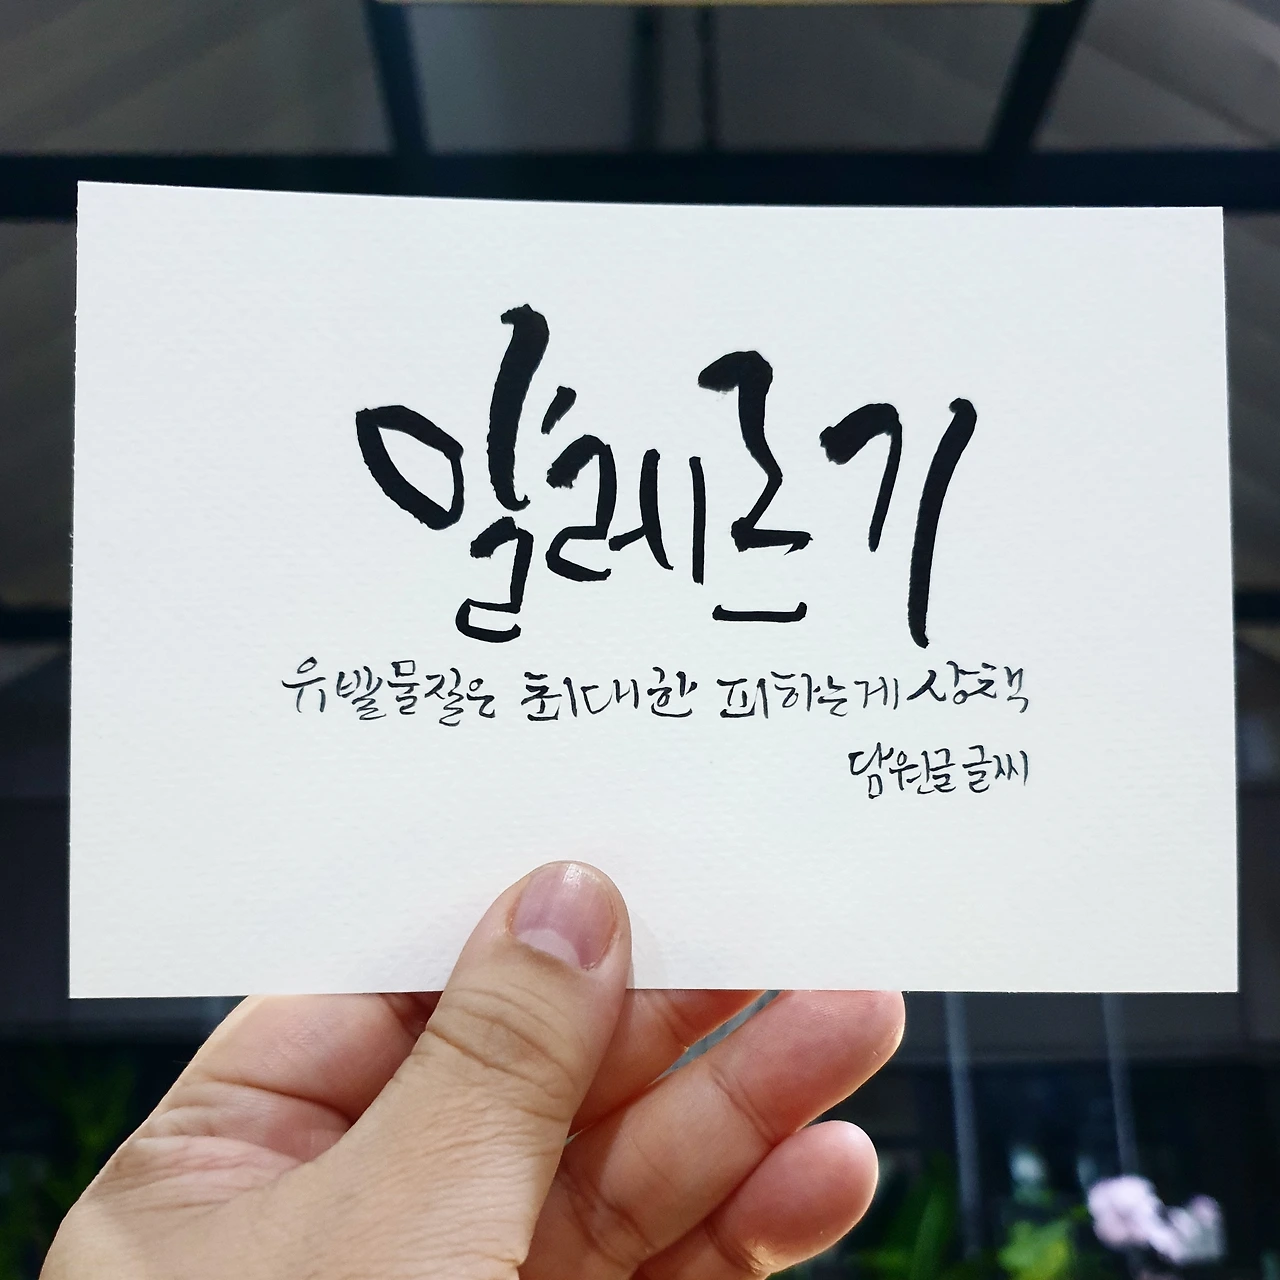 알레르기
유발물질은 최대한 피하는게 상책
담원글글씨